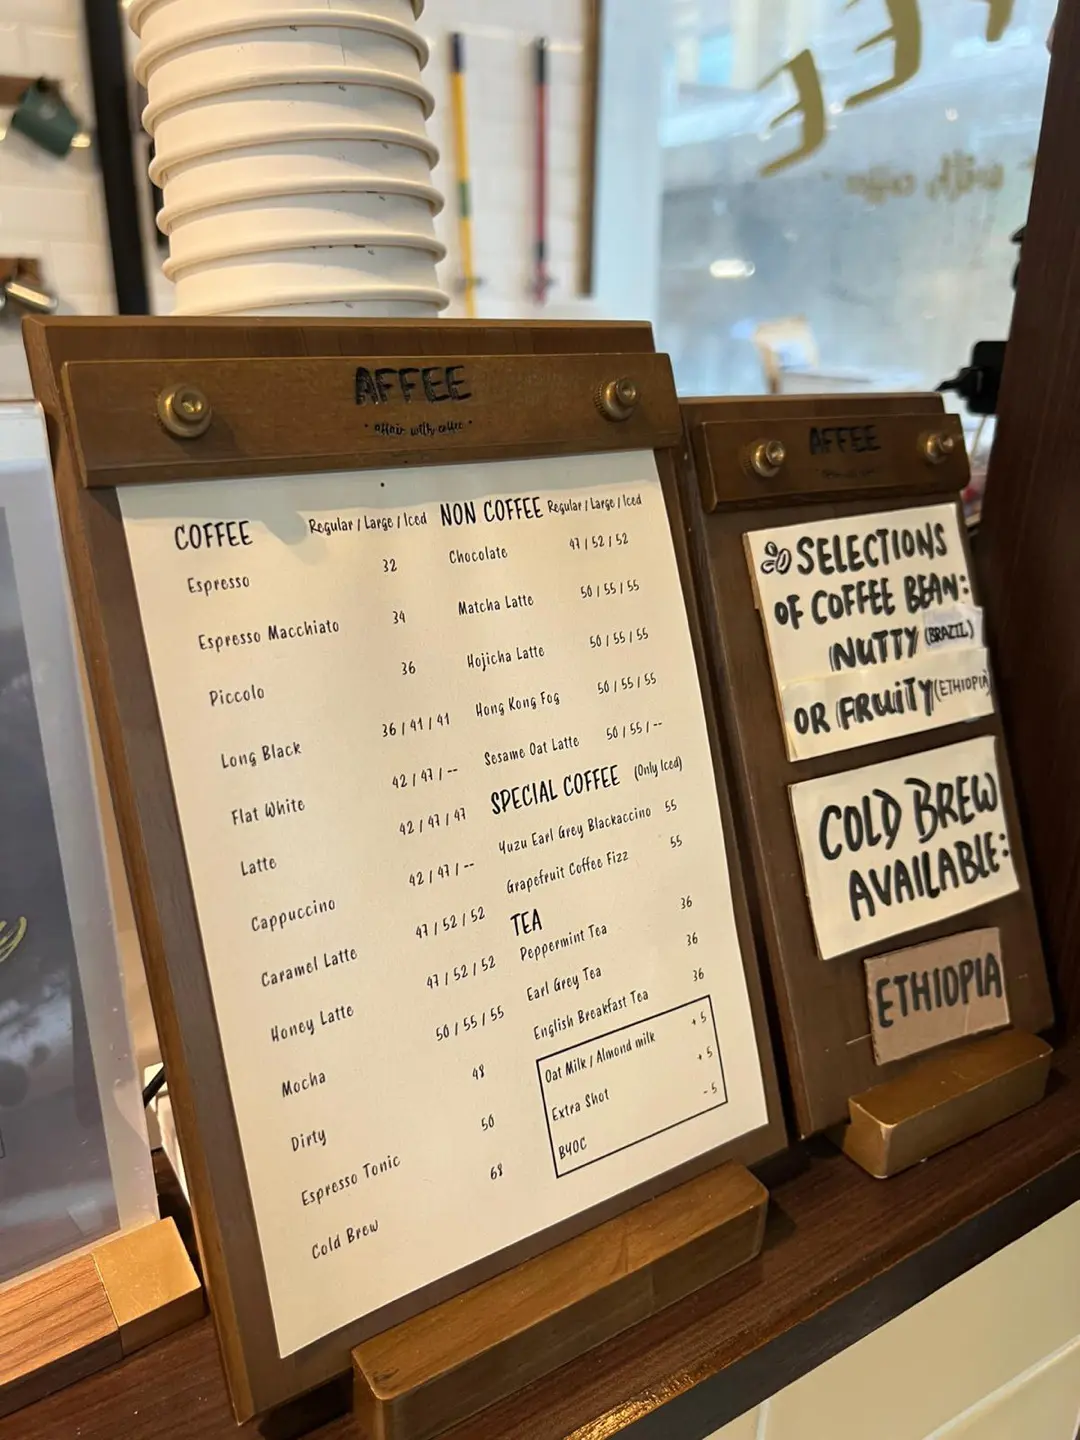 AFFEE
• affair with coffee •
COFFEE Regular / Large / Iced
Espresso 32
Espresso Macchiato 34
Piccolo 36
Long Black 36 / 41 / 41
Flat White 42 / 47 / --
Latte 42 / 47 / 47
Cappuccino 42 / 47 / --
Caramel Latte 47 / 52 / 52
Honey Latte 47 / 52 / 52
Mocha 50 / 55 / 55
Dirty 48
Espresso Tonic 50
Cold Brew 68
NON COFFEE Regular / Large / Iced
Chocolate 47 / 52 / 52
Matcha Latte 50 / 55 / 55
Hojicha Latte 50 / 55 / 55
Hong Kong Fog 50 / 55 / 55
Sesame Oat Latte 50 / 55 / --
SPECIAL COFFEE (Only Iced)
Yuzu Earl Grey Blackaccino 55
Grapefruit Coffee Fizz 55
TEA
Peppermint Tea 36
Earl Grey Tea 36
English Breakfast Tea 36
Oat Milk / Almond milk + 5
Extra Shot + 5
BYOC - 5
AFFEE
SELECTIONS
OF COFFEE BEAN:
NUTTY (BRAZIL)
OR FRUiTY (ETHIOPIA)
COLD BREW
AVAILABLE:
ETHIOPIA